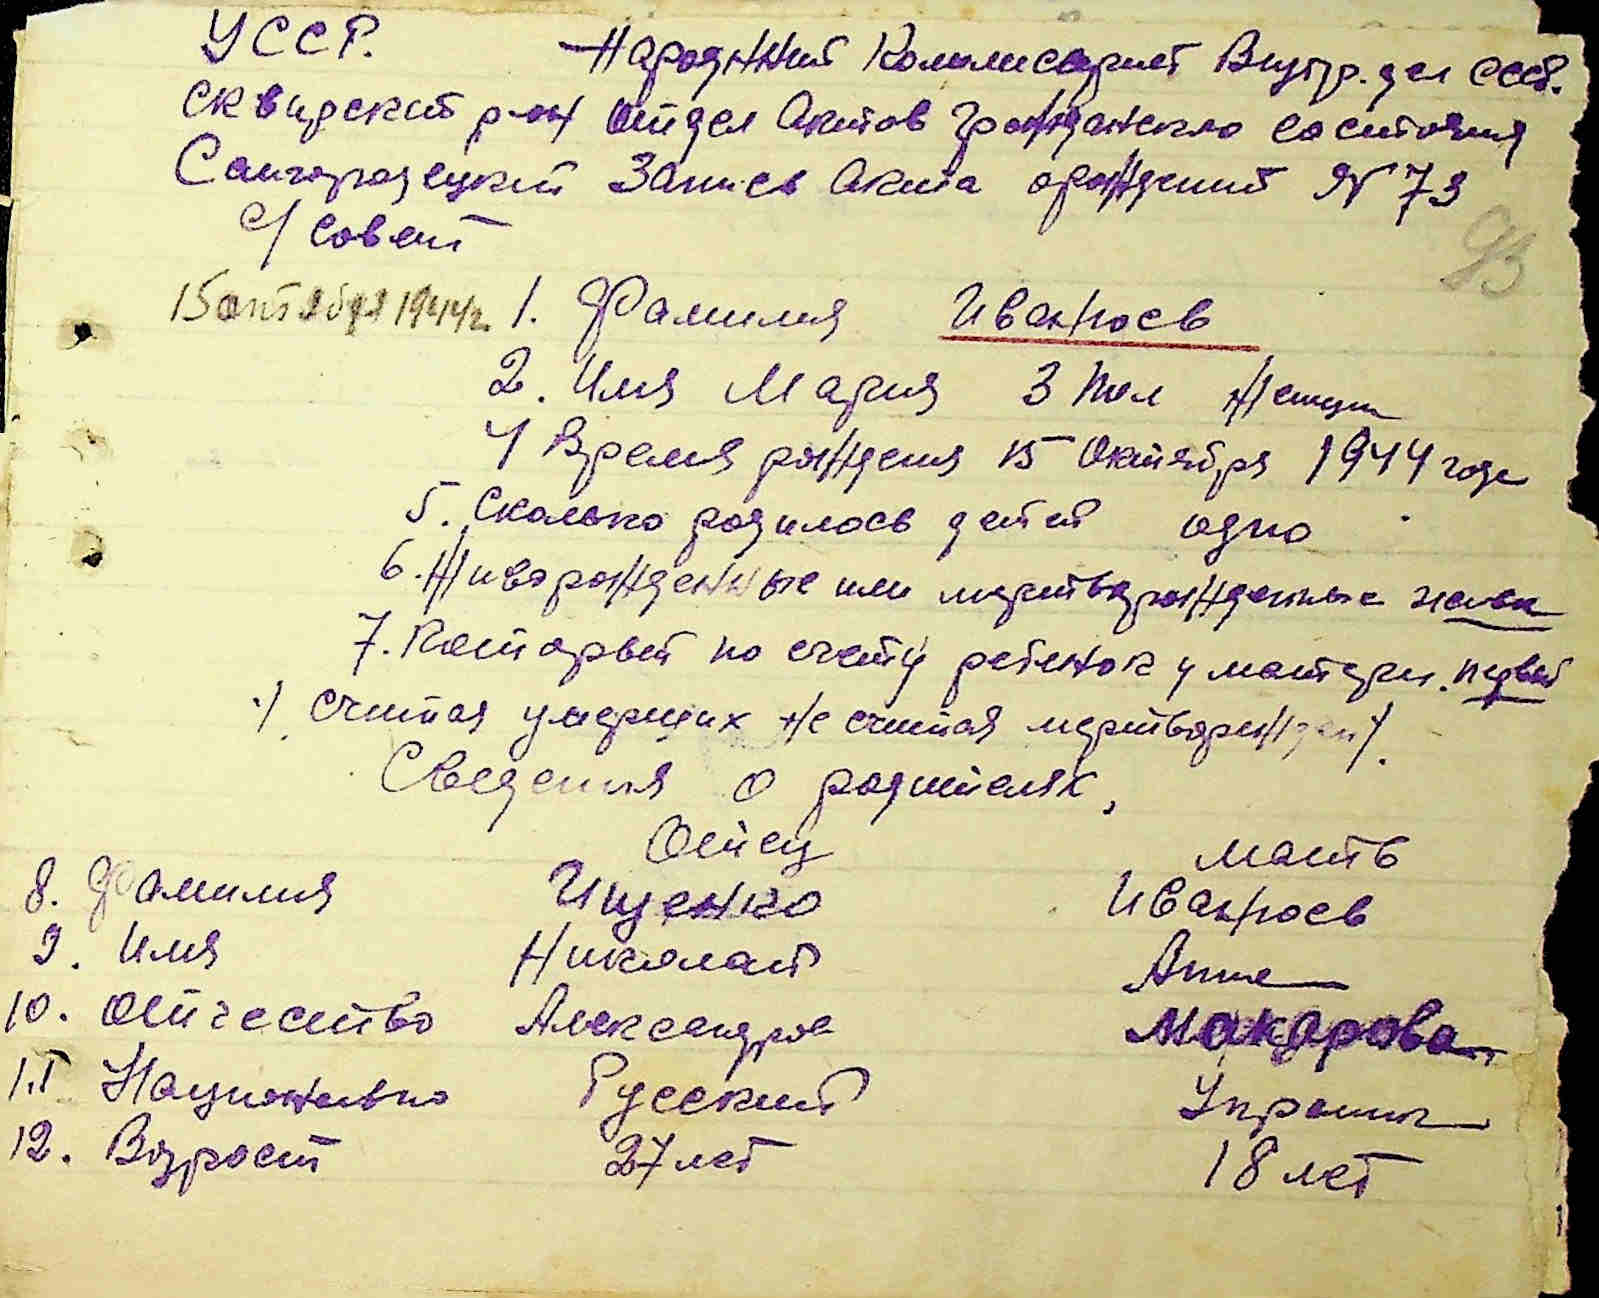 УССР. Народний Комисариат Внутр. дел СССР.
Сквирский р-он Отдел Актов Гражданского состояния
Самгородецкий Запись Акта орождений № 73
с/совет
93
15 октября 1944 г. 1. Фамилия Иванюсь
2. Имя Мария 3 Пол Женщин
4 Время рождения 15 Октября 1944 года
5. Сколько родилось детей одно
6. Живорожденные или мертворожденные живы
7. Который по счету ребенок у матери. первый
/ Считая умерших не считая мертворожден/.
Сведения о родителях,
Отец мать
8. Фамилия Ищенко Иванюсь
9. Имя Николай Анна
10. Отчество Александров Макарова
11 Национально Русский Украинка
12. Возраст 27 лет 18 лет